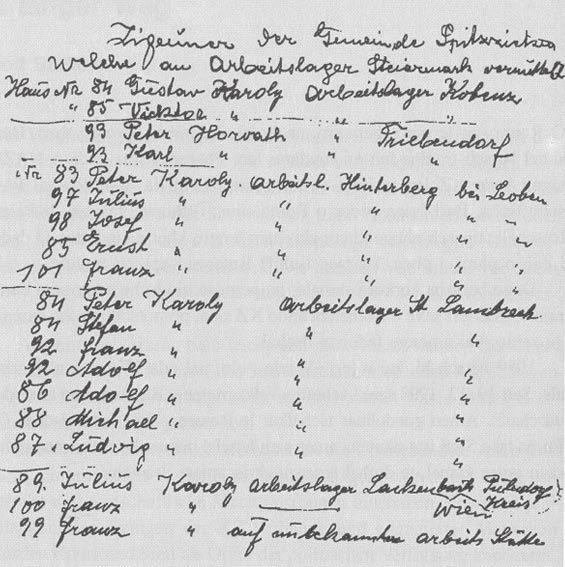 Zigeuner der Gemeinde Spitzzicken
Welche an Arbeitslager Steiermark vermittelt
Haus Nr 84 Gustav Karoly Arbeitslager Kobenz
" 85 Vicktor " " "
93 Peter Horvath " Triebendorf
93 Karl " " "
Nr 83 Peter Karoly. Arbeitsl. Hinterberg bei Leoben
97 Julius " " " " "
98 Josef " " " " "
85 Ernst " " " " "
101 Franz " " " " "
84 Peter Karoly Arbeitslager St Lambrech
84 Stefan " " "
92 Franz " " "
92 Adolf " " "
86 Adolf " " "
88 Michael " " "
87. Ludvig " " "
89. Julius Karoly Arbeitslager Lackenbach
100 Franz " Wien Kreis
99 Franz " auf unbekannten Arbeits Stätte